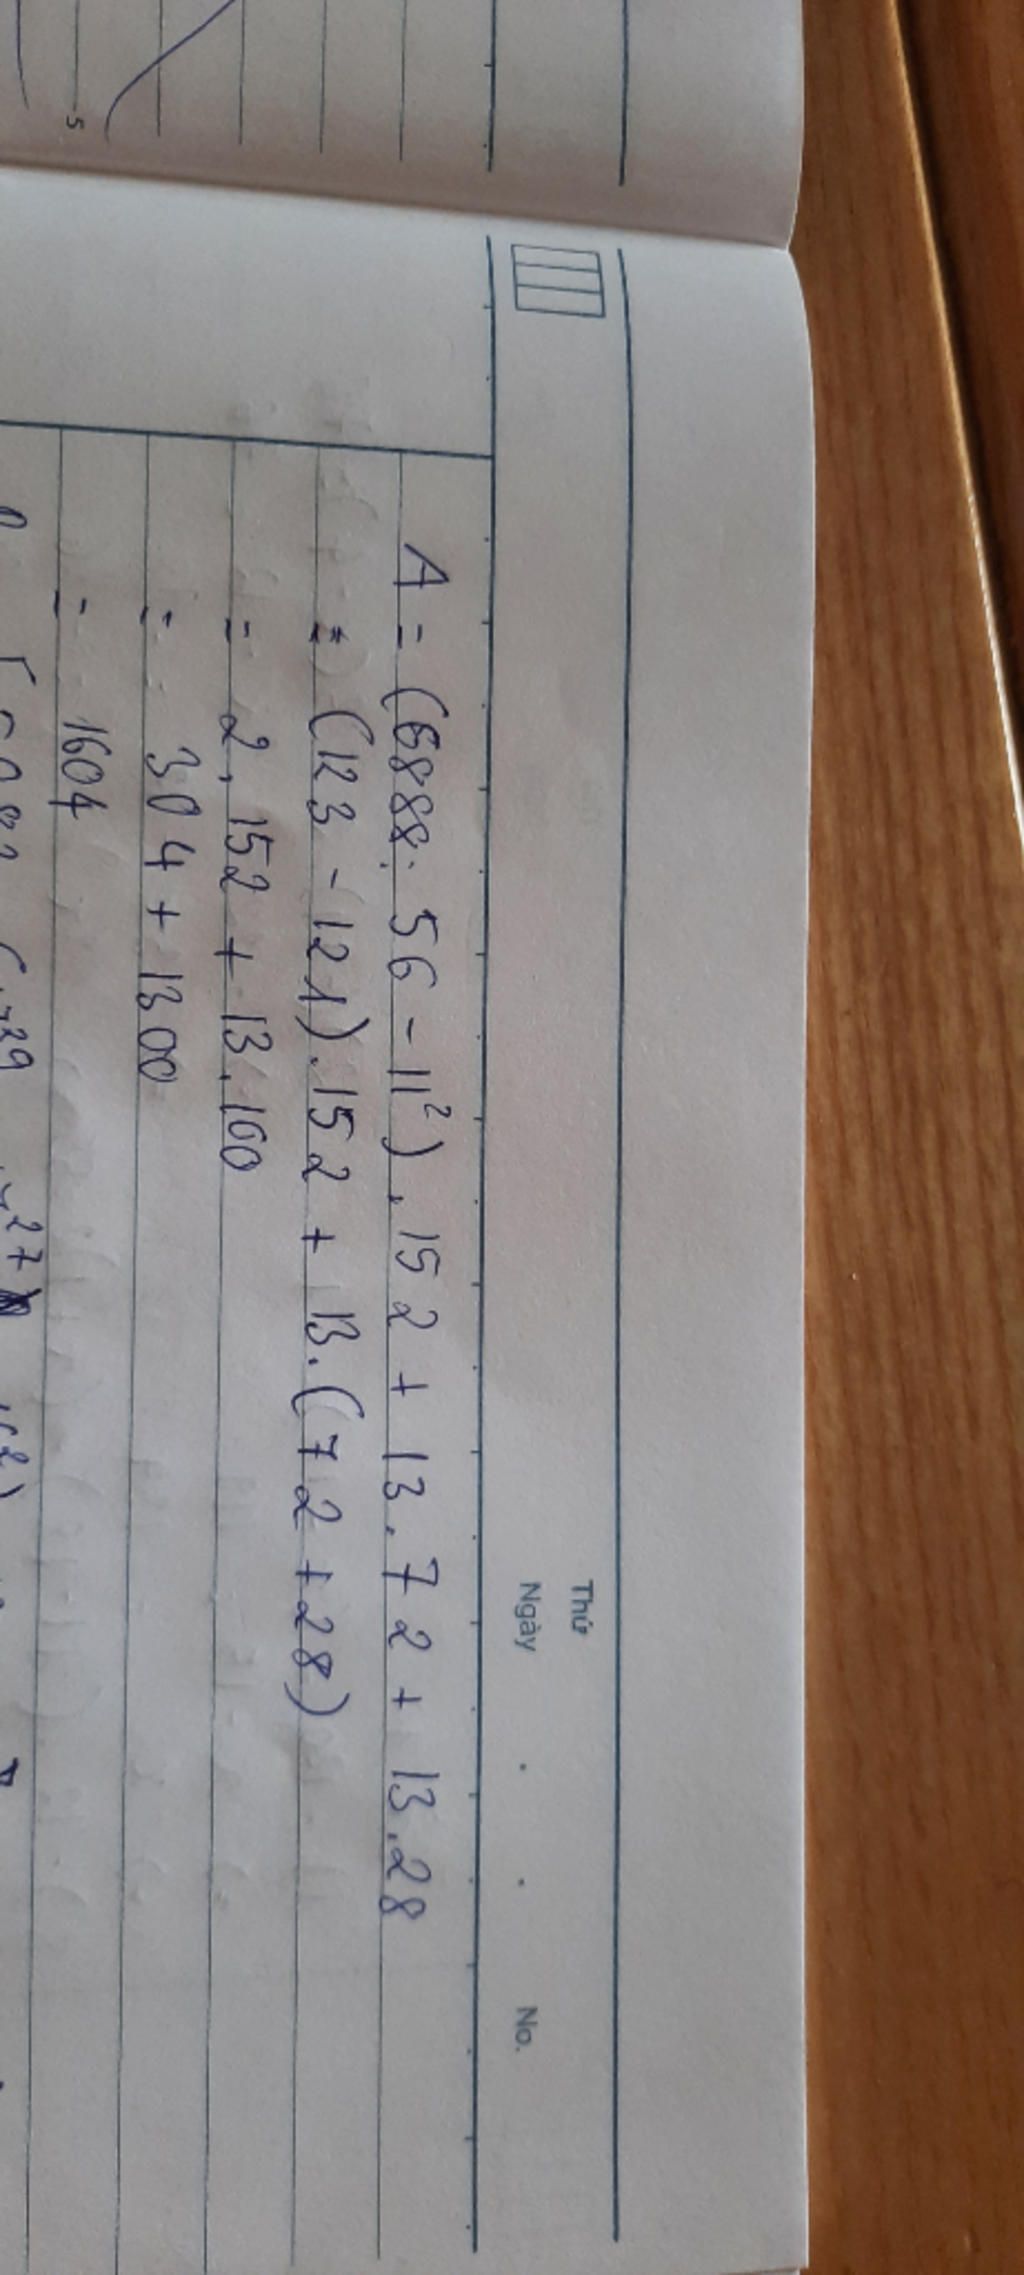 5
Thứ
Ngày . . No.
A = (6888: 56 - 11²) . 152 + 13.72 + 13.28
= (123 - 121).152 + 13.(72 + 28)
= 2.152 + 13.100
= 304 + 1300
= 1604